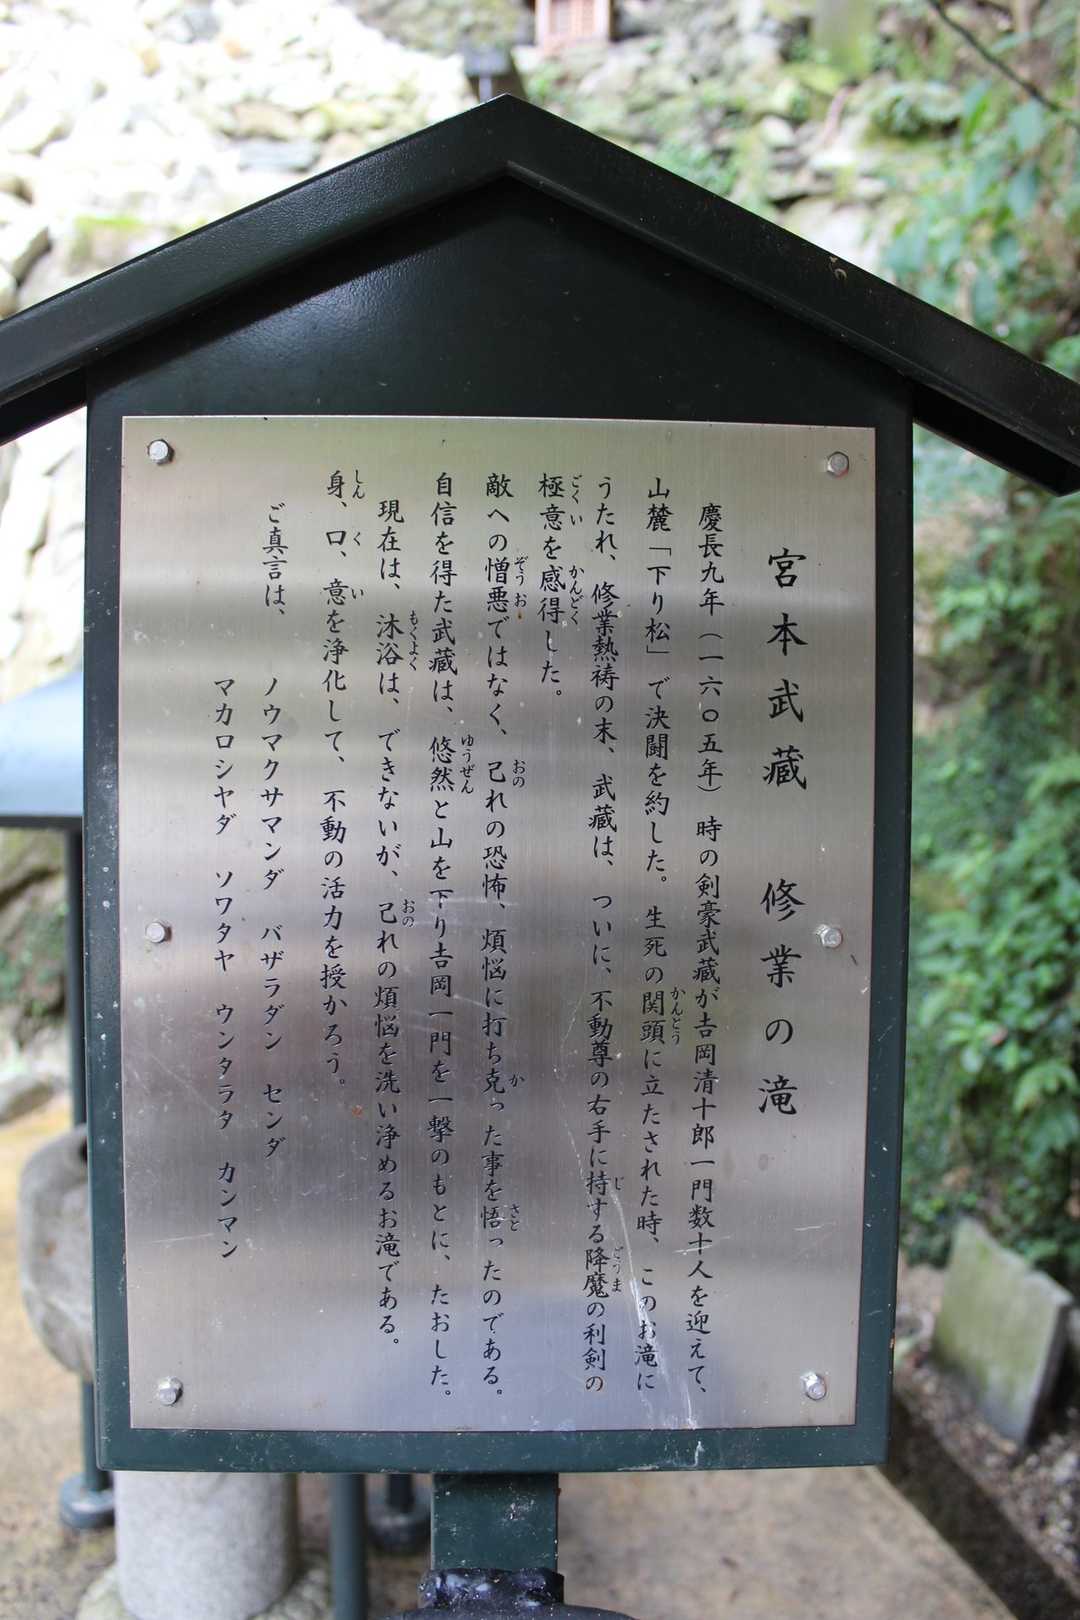 宮本武蔵　修業の滝
慶長九年（一六〇五年）時の剣豪武蔵が吉岡清十郎一門数十人を迎えて、
山麓「下り松」で決闘を約した。生死の関頭に立たされた時、このお滝に
かんとう
うたれ、修業熱祷の末、武蔵は、ついに、不動尊の右手に持する降魔の利剣の
じ
ごうま
極意を感得した。
ごくい
かんどく
敵への憎悪ではなく、己れの恐怖、煩悩に打ち克った事を悟ったのである。
ぞうお
おの
か
さと
自信を得た武蔵は、悠然と山を下り吉岡一門を一撃のもとに、たおした。
ゆうぜん
現在は、沐浴は、できないが、己れの煩悩を洗い浄めるお滝である。
もくよく
おの
身、口、意を浄化して、不動の活力を授かろう。
しん
く
い
ご真言は、　ノウマクサマンダ　バザラダン　センダ
マカロシヤダ　ソワタヤ　ウンタラタ　カンマン